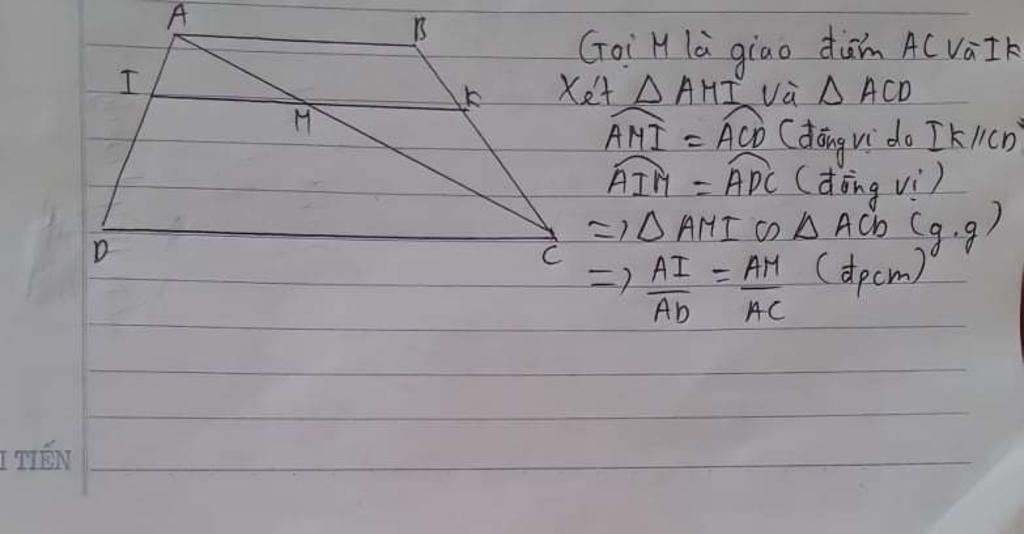 A
B
I
K
M
D
C
Gọi M là giao điểm AC và Ik
Xét △ AMI và △ ACD
AMI = ACD (đồng vị do Ik//CD
AIM = ADC (đồng vị)
=> △ AMI ∽ △ ACD (g.g)
=> AI/AD = AM/AC (đpcm)
I TIẾN